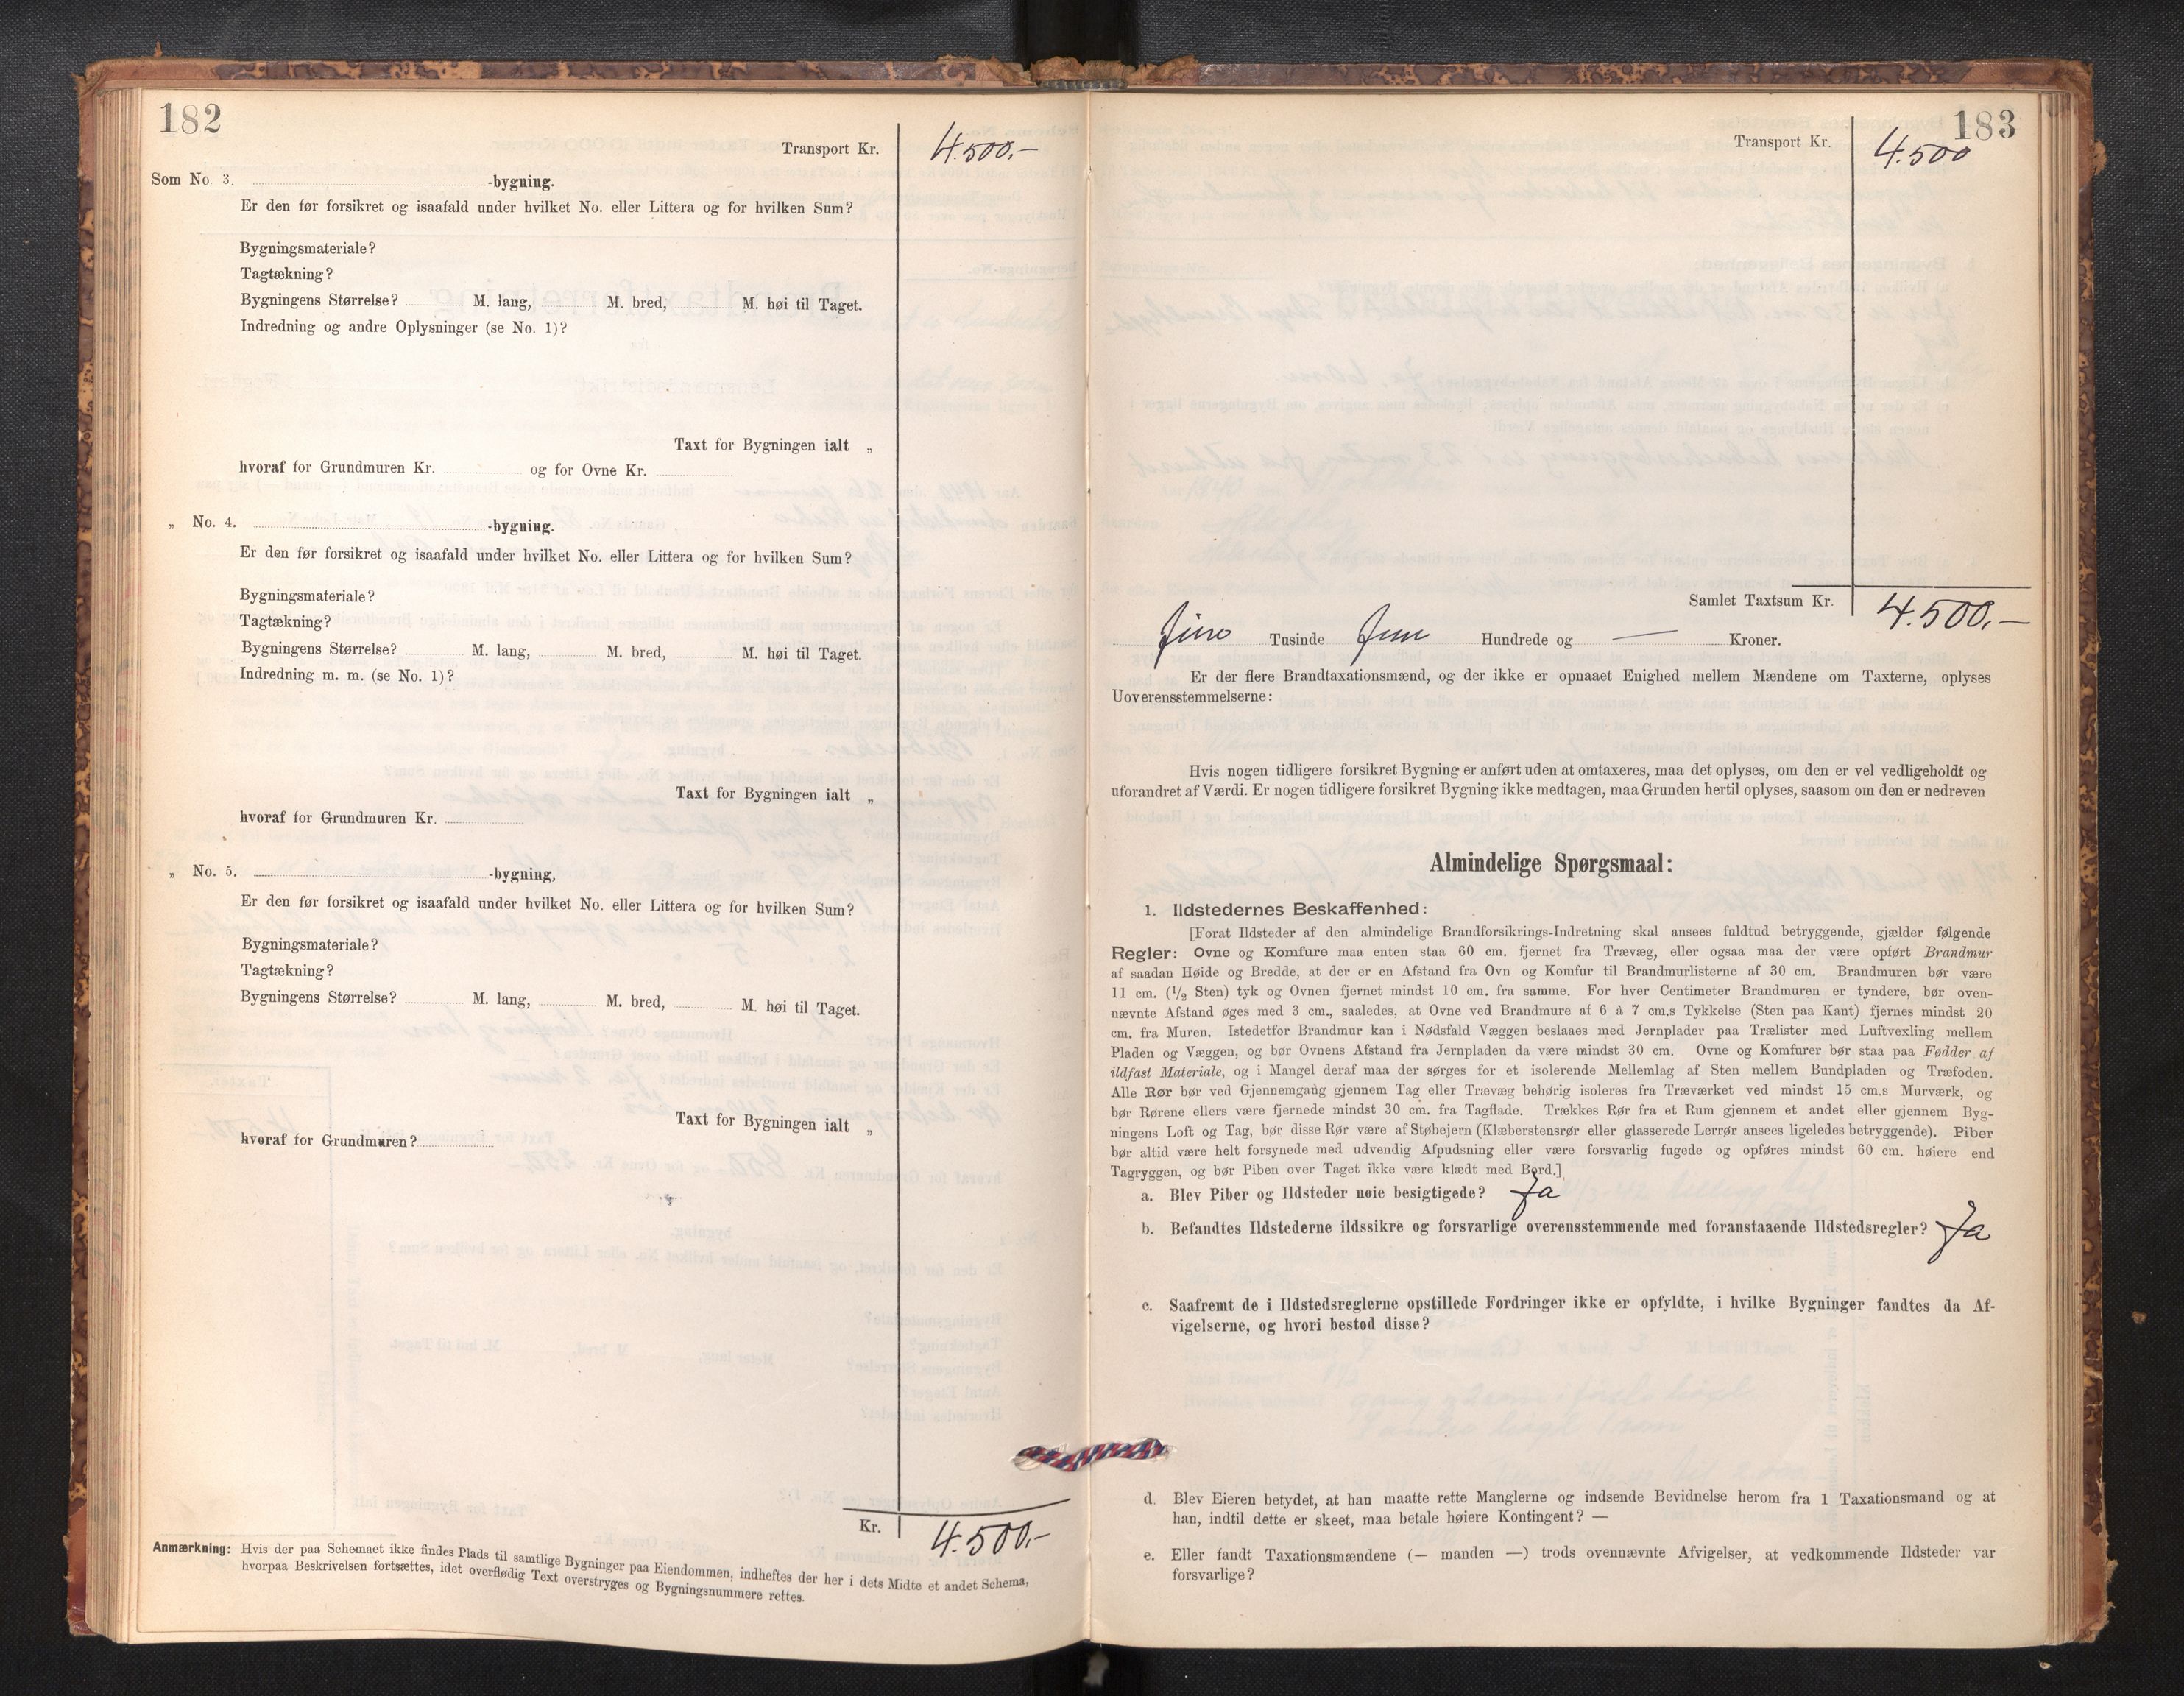 182
Transport Kr. 4.500,-
Som No. 3. -bygning.
Er den før forsikret og isaafald under hvilket No. eller Littera og for hvilken Sum?
Bygningsmateriale?
Tagtækning?
Bygningens Størrelse? M. lang, M. bred, M. høi til Taget.
Indredning og andre Oplysninger (se No. 1)?
Taxt for Bygningen ialt „
hvoraf for Grundmuren Kr. og for Ovne Kr.
„ No. 4. -bygning.
Er den før forsikret og isaafald under hvilket No. eller Littera og for hvilken Sum?
Bygningsmateriale?
Tagtækning?
Bygningens Størrelse? M. lang, M. bred, M. høi til Taget.
Indredning m. m. (se No. 1)?
Taxt for Bygningen ialt „
hvoraf for Grundmuren Kr.
„ No. 5. -bygning,
Er den før forsikret og isaafald under hvilket No. eller Littera og for hvilken Sum?
Bygningsmateriale?
Tagtækning?
Bygningens Størrelse? M. lang, M. bred, M. høi til Taget.
Taxt for Bygningen ialt „
hvoraf for Grundmuren?
Kr. 4.500,-
Anmærkning: Hvis der paa Schemaet ikke findes Plads til samtlige Bygninger paa Eiendommen, indheftes der her i dets Midte et andet Schema,
hvorpaa Beskrivelsen fortsættes, idet overflødig Text overstryges og Bygningsnummere rettes.
183
Transport Kr. 4.500
Samlet Taxtsum Kr. 4.500,-
Fire Tusinde Fem Hundrede og — Kroner.
Er der flere Brandtaxationsmænd, og der ikke er opnaaet Enighed mellem Mændene om Taxterne, oplyses
Uoverensstemmelserne:
Hvis nogen tidligere forsikret Bygning er anført uden at omtaxeres, maa det oplyses, om den er vel vedligeholdt og
uforandret af Værdi. Er nogen tidligere forsikret Bygning ikke medtagen, maa Grunden hertil oplyses, saasom om den er nedreven
Almindelige Spørgsmaal:
1. Ildstedernes Beskaffenhed:
[Forat Ildsteder af den almindelige Brandforsikrings-Indretning skal ansees fuldtud betryggende, gjælder følgende
Regler: Ovne og Komfure maa enten staa 60 cm. fjernet fra Trævæg, eller ogsaa maa der være opført Brandmur
af saadan Høide og Bredde, at der er en Afstand fra Ovn og Komfur til Brandmurlisterne af 30 cm. Brandmuren bør være
11 cm. (1/2 Sten) tyk og Ovnen fjernet mindst 10 cm. fra samme. For hver Centimeter Brandmuren er tyndere, bør oven-
nævnte Afstand øges med 3 cm., saaledes, at Ovne ved Brandmure af 6 à 7 cm.s Tykkelse (Sten paa Kant) fjernes mindst 20
cm. fra Muren. Istedetfor Brandmur kan i Nødsfald Væggen beslaaes med Jernplader paa Trælister med Luftvexling mellem
Pladen og Væggen, og bør Ovnens Afstand fra Jernpladen da være mindst 30 cm. Ovne og Komfurer bør staa paa Fødder af
ildfast Materiale, og i Mangel deraf maa der sørges for et isolerende Mellemlag af Sten mellem Bundpladen og Træfoden.
Alle Rør bør ved Gjennemgang gjennem Tag eller Trævæg behørig isoleres fra Træværket ved mindst 15 cm.s Murværk, og
bør Rørene ellers være fjernede mindst 30 cm. fra Tagflade. Trækkes Rør fra et Rum gjennem et andet eller gjennem Byg-
ningens Loft og Tag, bør disse Rør være af Støbejern (Klæberstensrør eller glasserede Lerrør ansees ligeledes betryggende). Piber
bør altid være helt forsynede med udvendig Afpudsning eller være forsvarlig fugede og opføres mindst 60 cm. høiere end
Tagryggen, og bør Piben over Taget ikke være klædt med Bord.]
a. Blev Piber og Ildsteder nøie besigtigede? Ja
b. Befandtes Ildstederne ildssikre og forsvarlige overensstemmende med foranstaaende Ildstedsregler? Ja
c. Saafremt de i Ildstedsreglerne opstillede Fordringer ikke er opfyldte, i hvilke Bygninger fandtes da Af-
vigelserne, og hvori bestod disse?
d. Blev Eieren betydet, at han maatte rette Manglerne og indsende Bevidnelse herom fra 1 Taxationsmand og at
han, indtil dette er skeet, maa betale høiere Kontingent? —
e. Eller fandt Taxationsmændene (— manden —) trods ovennævnte Afvigelser, at vedkommende Ildsteder var
forsvarlige?